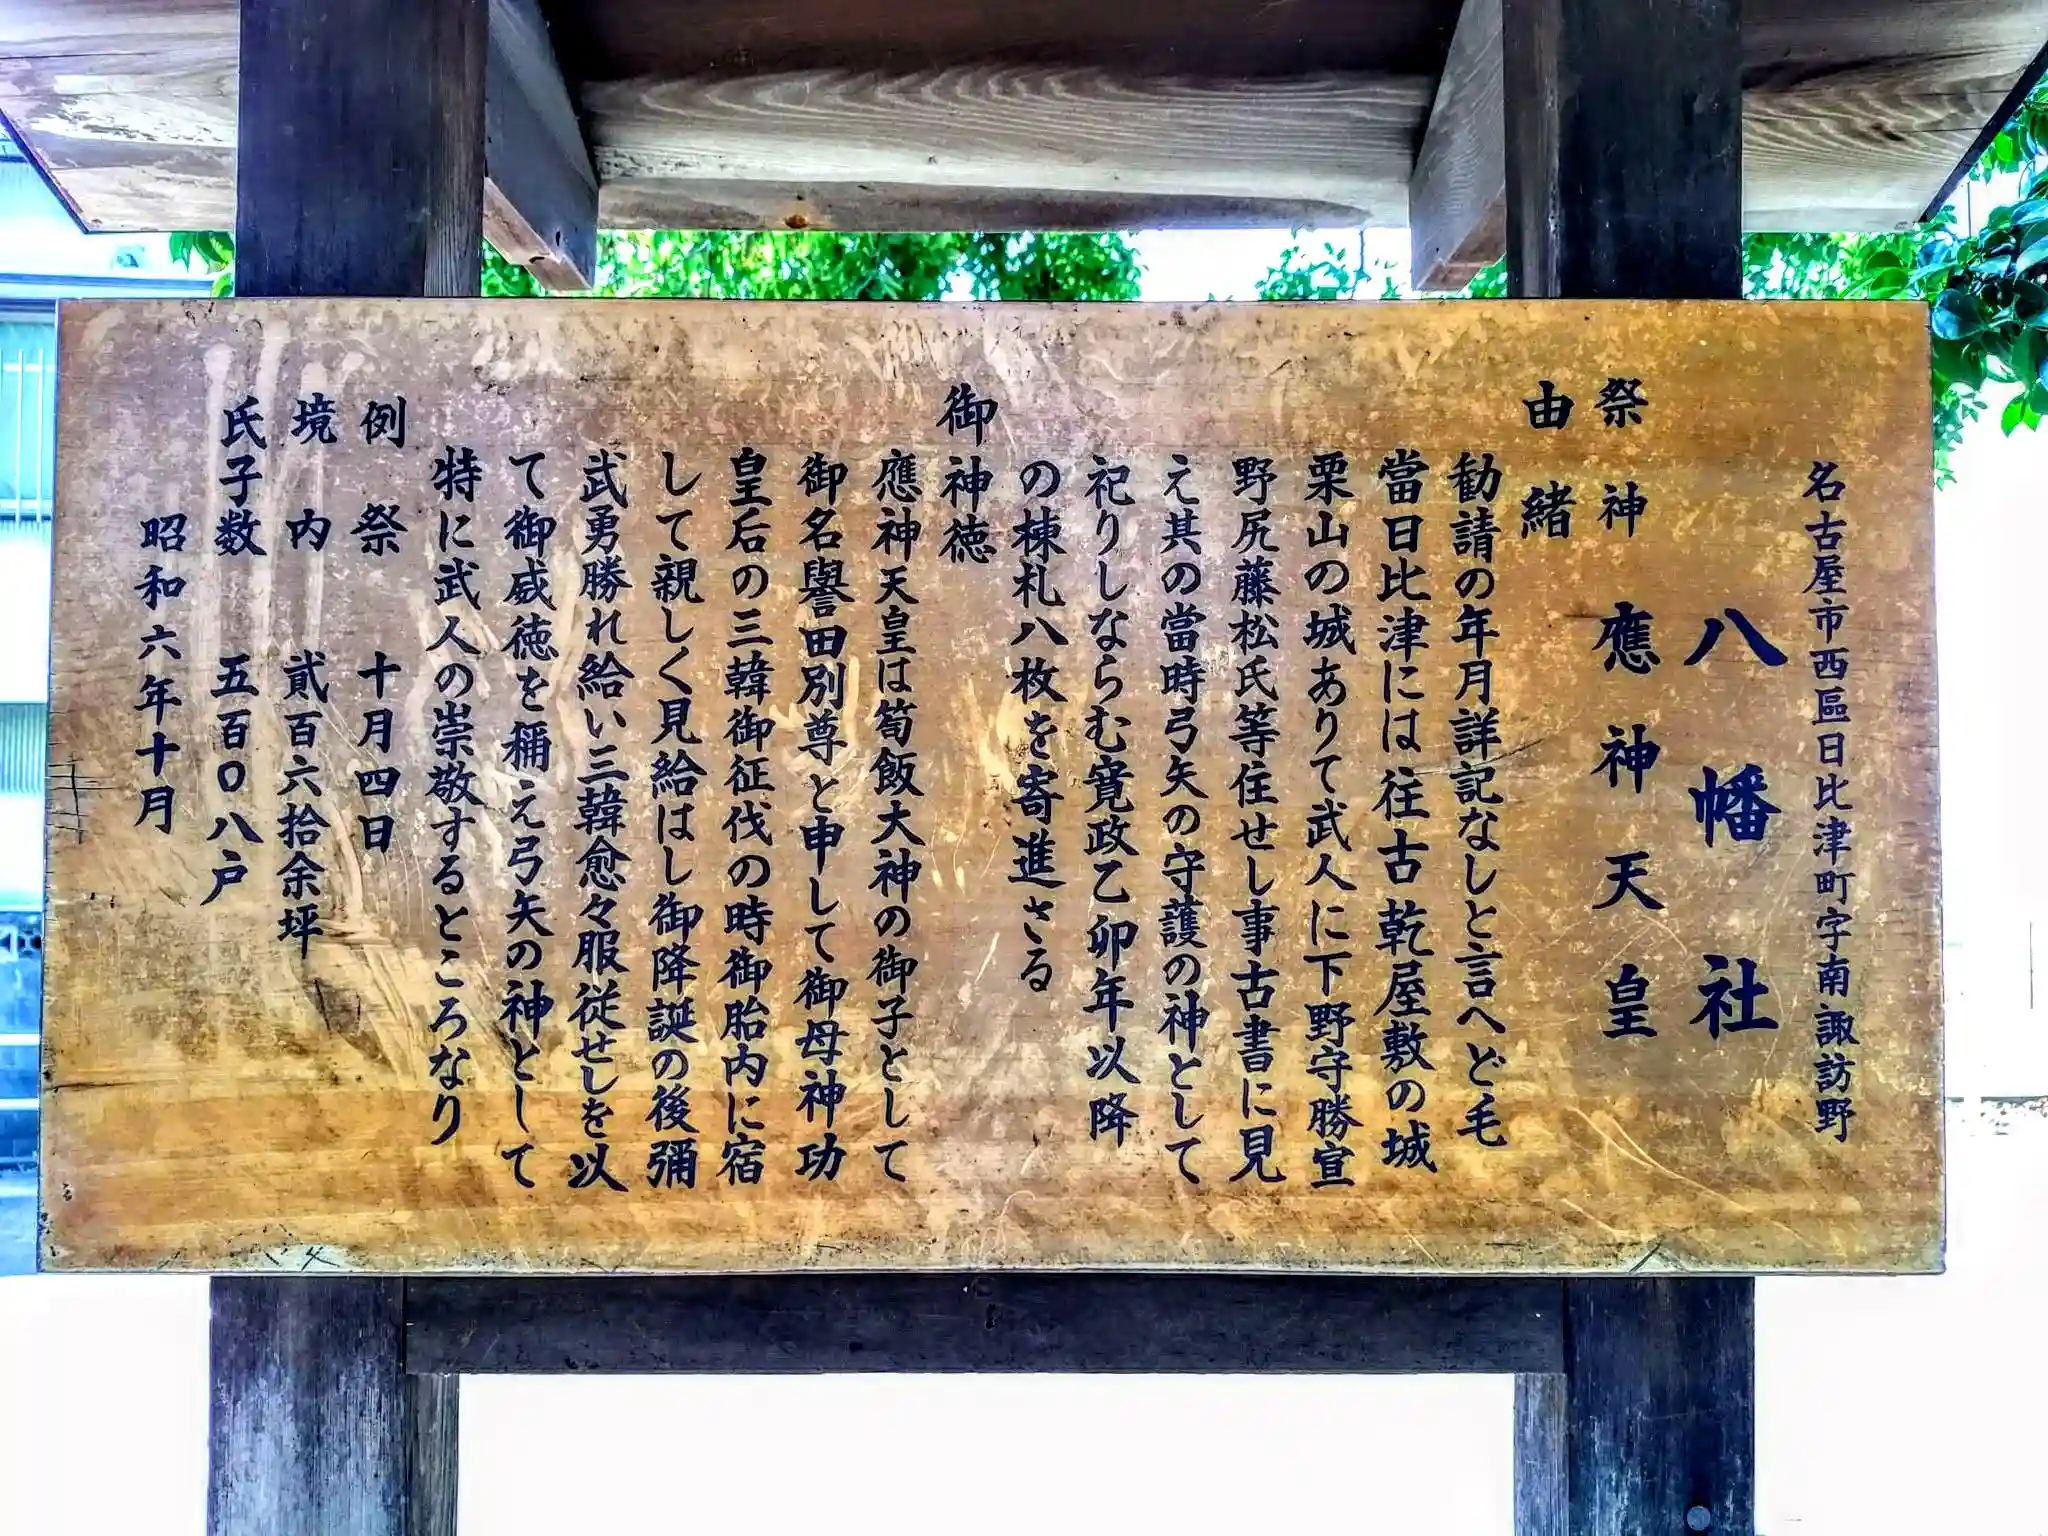 名古屋市西區日比津町字南諏訪野
八幡社
祭神 應神天皇
由緒
勧請の年月詳記なしと言へども
當日比津には往古乾屋敷の城
栗山の城ありて武人に下野守勝宣
野尻藤松氏等住せし事古書に見
え其の當時弓矢の守護の神として
祀りしならむ寛政乙卯年以降
の棟札八枚を寄進さる
御神徳
應神天皇は筍飯大神の御子として
御名譽田別尊と申して御母神功
皇后の三韓御征伐の時御胎内に宿
して親しく見給はし御降誕の後彌
武勇勝れ給い三韓愈々服従せしを以
て御威徳を稱え弓矢の神として
特に武人の崇敬するところなり
例祭 十月四日
境内 貳百六拾余坪
氏子数 五百〇八戸
昭和六年十月